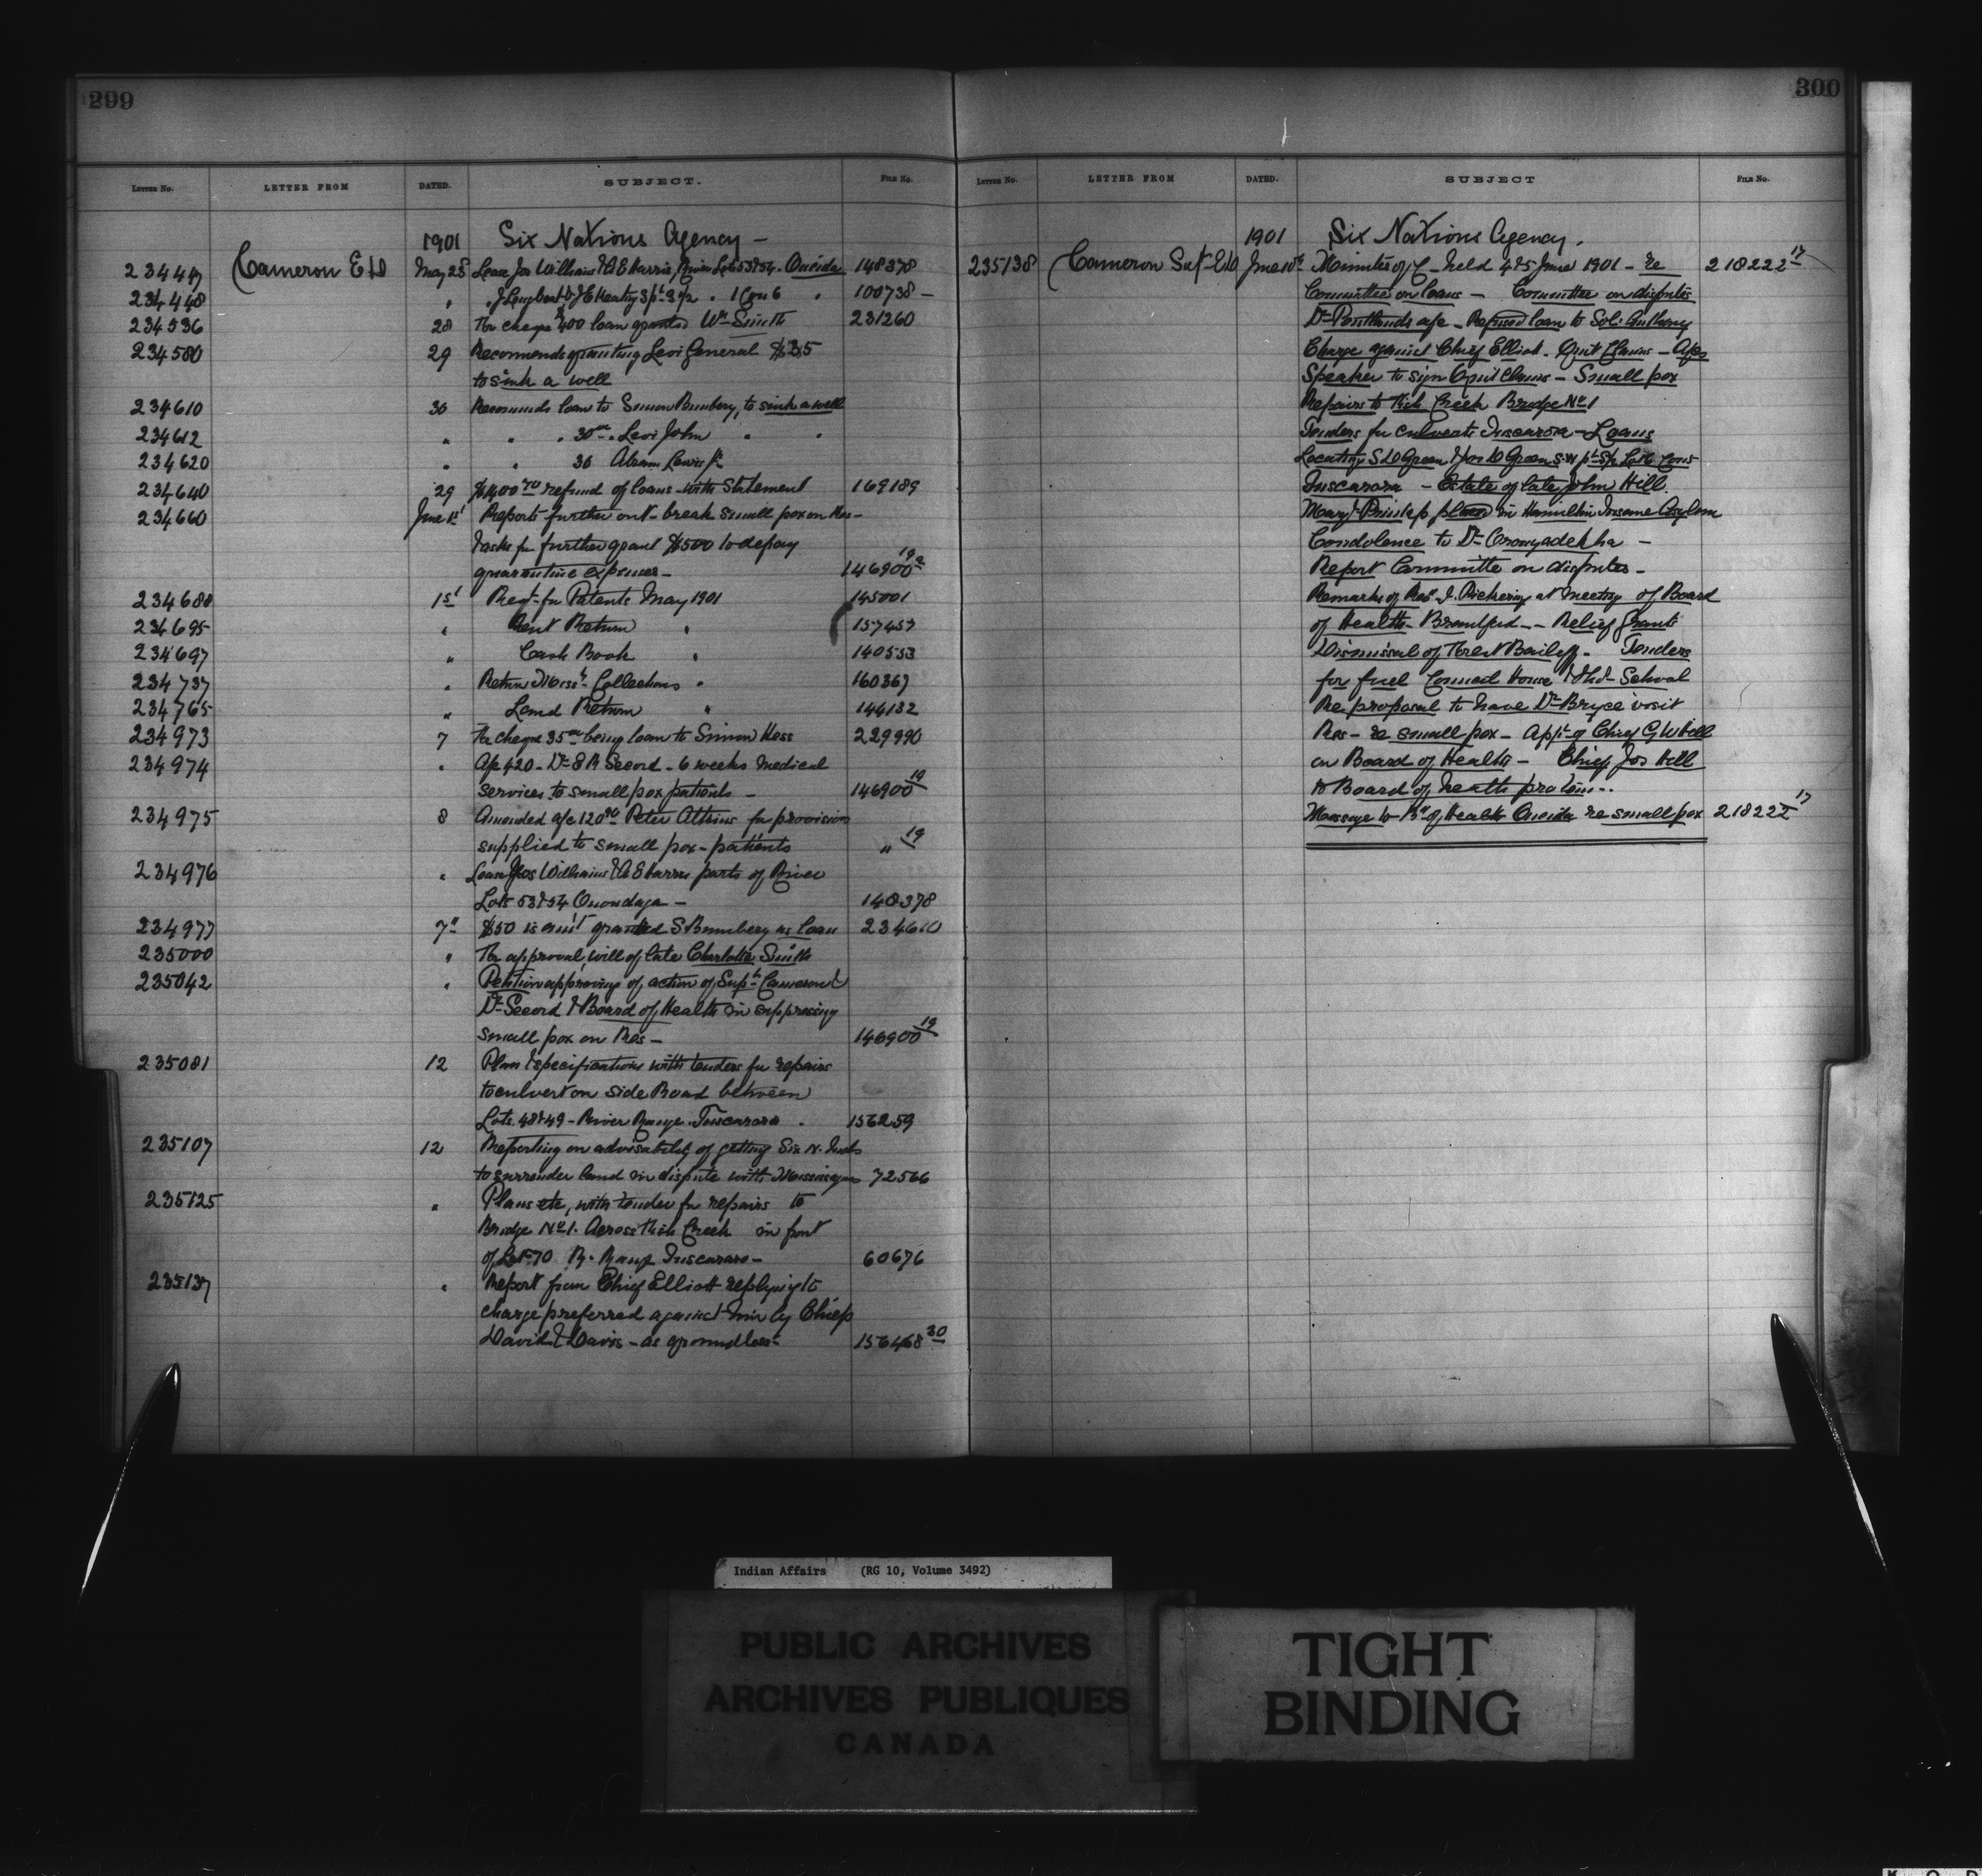 299
LETTER NO. LETTER FROM DATED. SUBJECT. FILE NO.
1901 Six Nations Agency -
234447 Cameron E D May 28 Lease Jos Williams & A E Harris, River Lots 53 & 54. Oneida 148378
234448 " " 1 Con 6 " 100738 -
234536 28 For cheque $400 loan granted Wm Smith 231260
234580 29 Recommends granting Levi General $35
to sink a well
234610 30 Recommends loan to Simon Bumbery, to sink a well
234612 " " " 30.00 " Levi John " "
234620 " " 30 Abram Lewis Jr
234640 29 refund of loans with Statement 169189
234660 June 1st Reports further out-break small pox on Res -
& asks for further grant $500 to defray
quarantine expenses - 146900 19 2
234680 1st Reqt. for Patents May 1901 145001
234695 " Rent Return " 157457
234697 " Cash Book " 140553
234737 " Return Collections " 160367
234765 " Land Return " 144132
234973 7 For cheque 35.00 being loan to Simon Hess 229990
234974 " A/c 420 - Dr S R Secord - 6 weeks medical
services to small pox patients - 146900 19
234975 8 Amended a/c 120.90 Peter Atkins for provision
supplied to small pox - patients " 19
234976 " Lease Jos Williams & A E Harris parts of River
Lots 53 & 54 Onondaga - 148378
234977 7" $50 is amt granted S Bumbery as loan 234610
235000 " For approval will of late Charlotte Smith
235042 " Petition approving of action of Supt Cameron &
Dr Secord & Board of Health in suppressing
small pox on Res - 146900 19
235081 12 Plan & specifications with tenders for repairs
to culvert on side Road between
Lots 48 & 49 - River Range. Tuscarora . 156259
235107 12 Reporting on advisability of getting Six N. Inds
to surrender land in dispute with Mississagas 72566
235125 " Plans etc, with tender for repairs to
Bridge No 1. Across Creek in front
of Lot 70 R. Range Tuscarora - 60676
235137 " Report from Chief Elliott replying to
charge preferred against him by Chiefs
David & Davis - as groundless - 156468 30
300
LETTER NO. LETTER FROM DATED. SUBJECT FILE NO.
1901 Six Nations Agency.
235138 Cameron Supt E D June 10th Minutes of C - held 4 & 5 June 1901 - re 218222 17
Committee on loans - Committee on disputes
Dr Pentlands a/c - Refused loan to Sol: Anthony
Charge against Chief Elliott. Quit Claims - Apps
Speaker to sign Quit Claims - Small pox
Repairs to Creek Bridge No 1
Tenders for culverts Tuscarora - Loans
Location S D Green & Jos D Green
Tuscarora - Estate of late John Hill.
Mary Printep in Hamilton Insane Asylum
Condolence to Dr Oronyadekha -
Report Committee on disputes -
Remarks of Res. J. Pickering at meeting of Board
of Health - Brantford - - Relief Grants
Dismissal of Forest Bailiff. Tenders
for fuel Council House & Thd - School
Re proposal to have Dr Bryce visit
Res - re small pox - Appt. of Chief G W Hill
on Board of Health - Chief Jos Hill
to Board of health pro tem - .
Message to Bd of Health Oneida re small pox 218222 17
Indian Affairs (RG 10, Volume 3492)
PUBLIC ARCHIVES
ARCHIVES PUBLIQUES
CANADA
TIGHT
BINDING